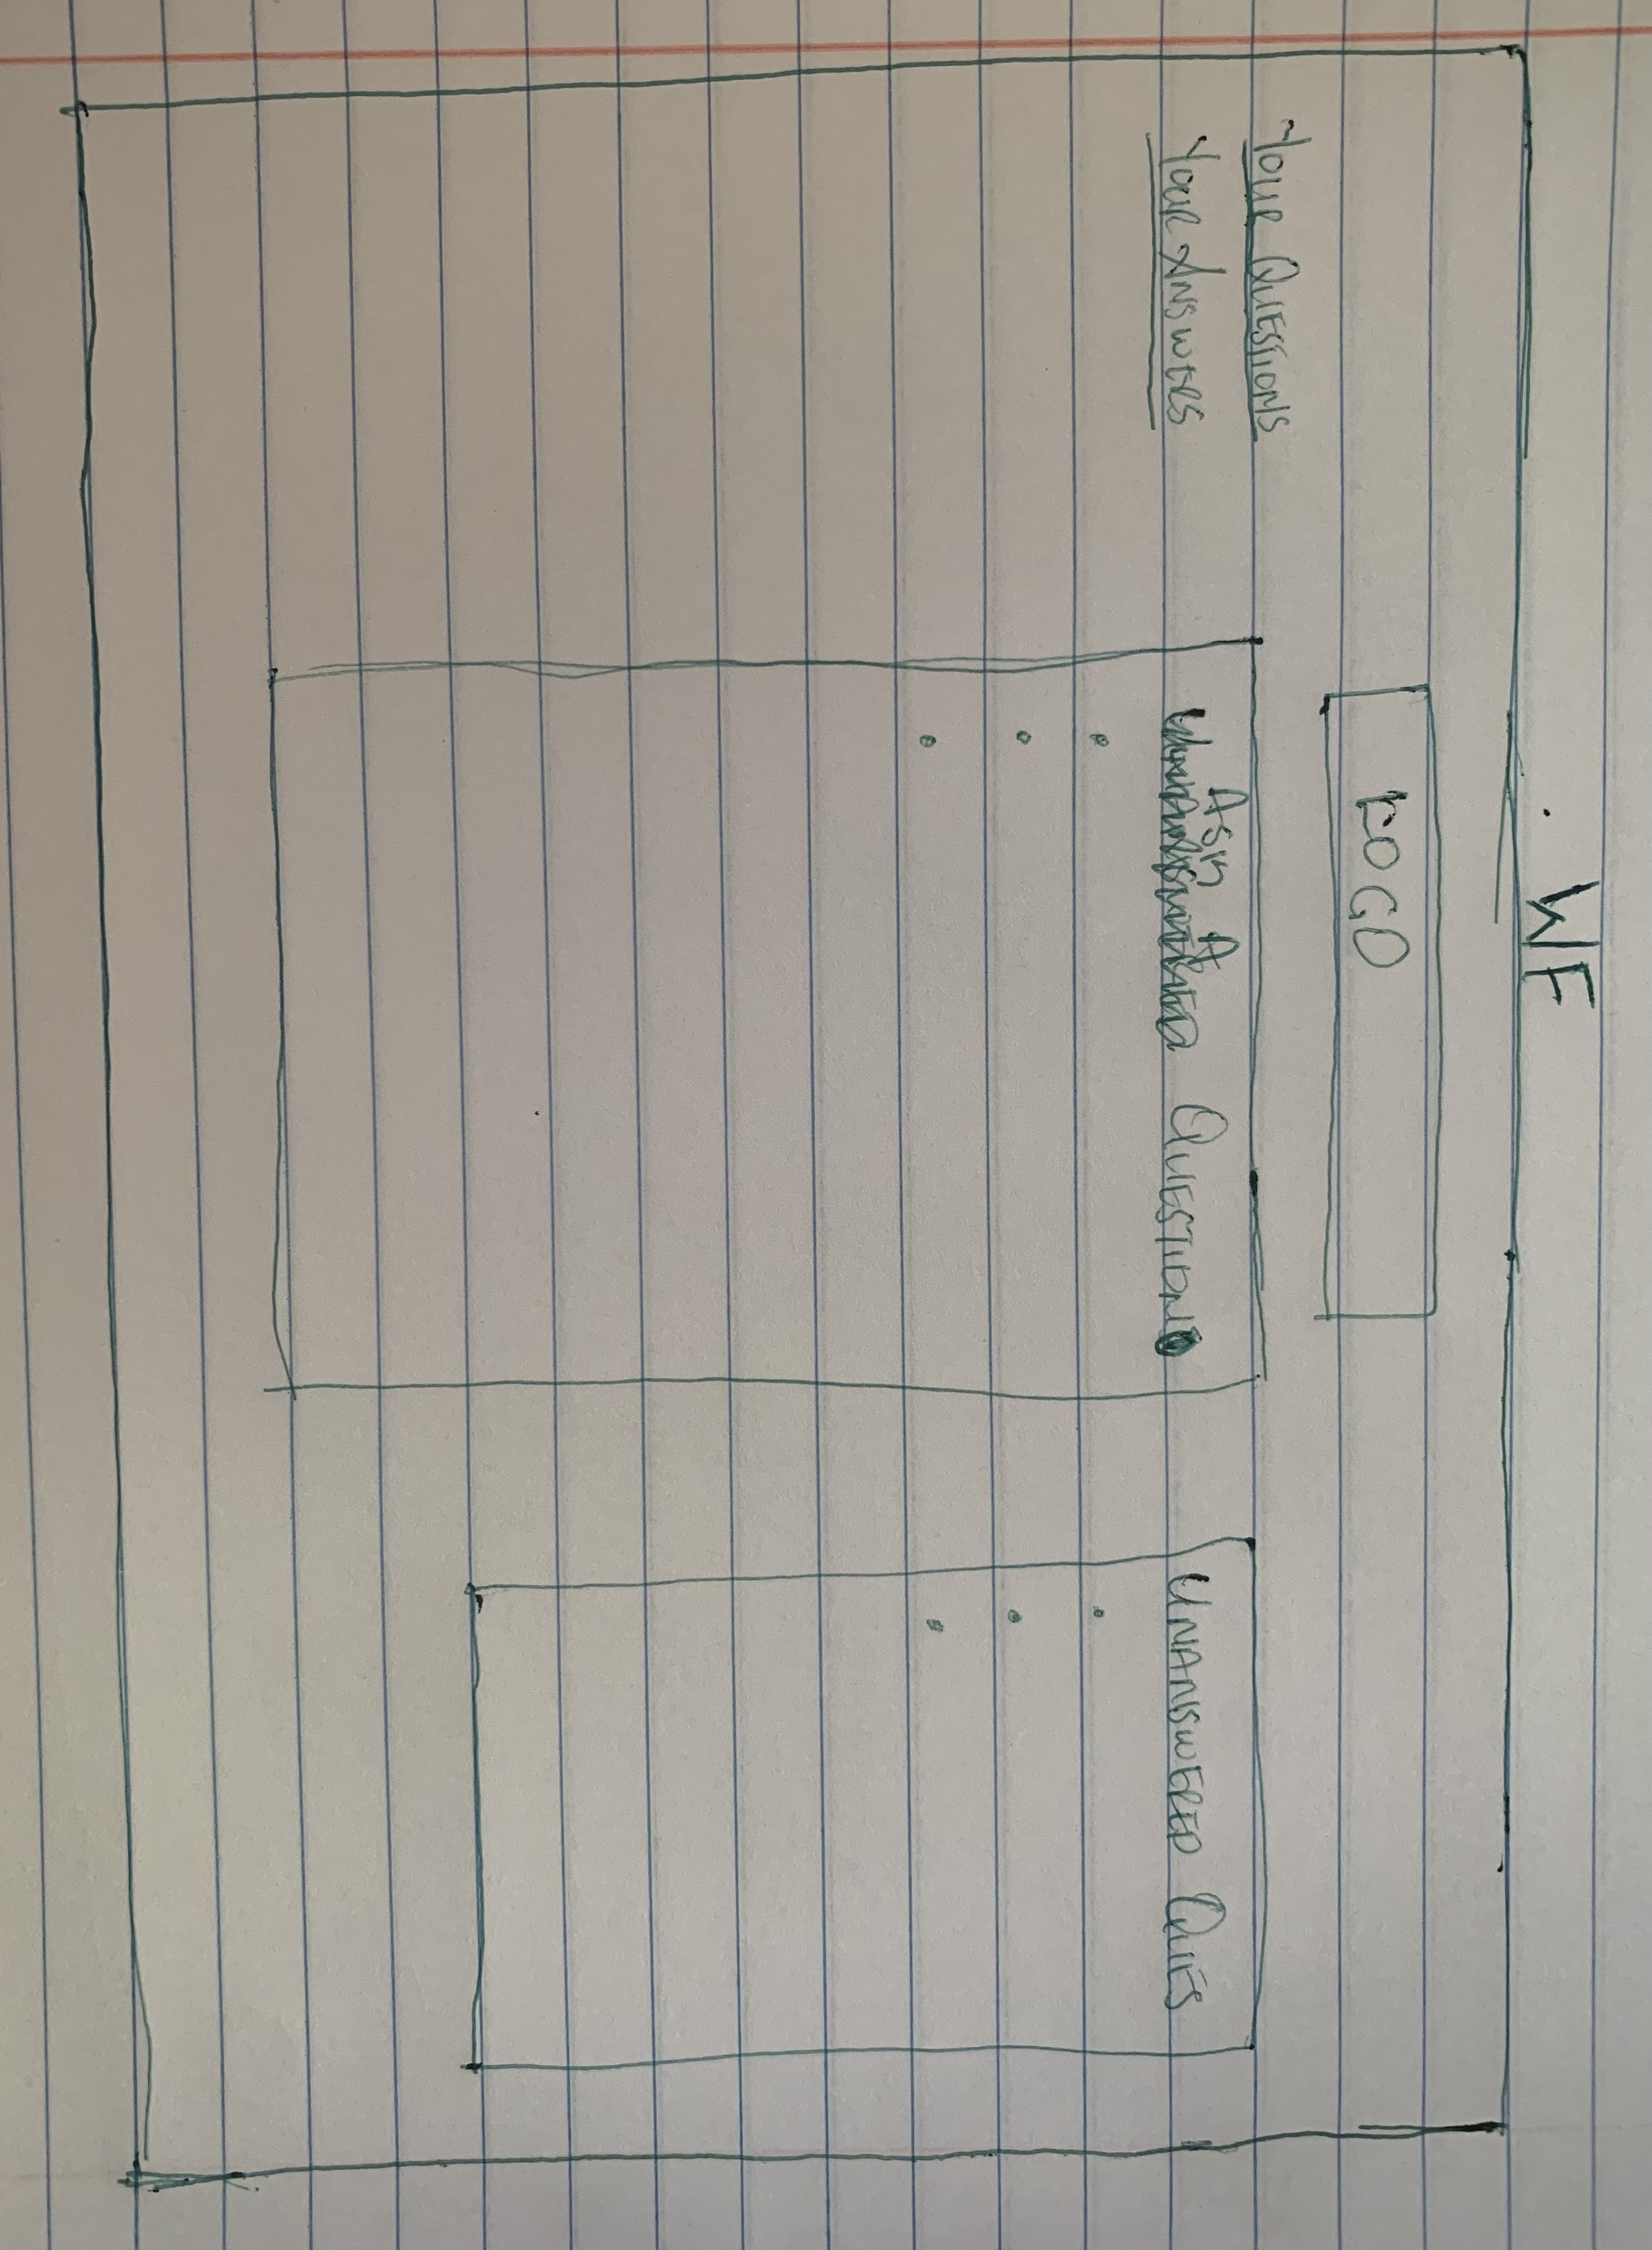 WF
LOGO
Your Questions
Your Answers
Ask A Question
Unanswered Ques